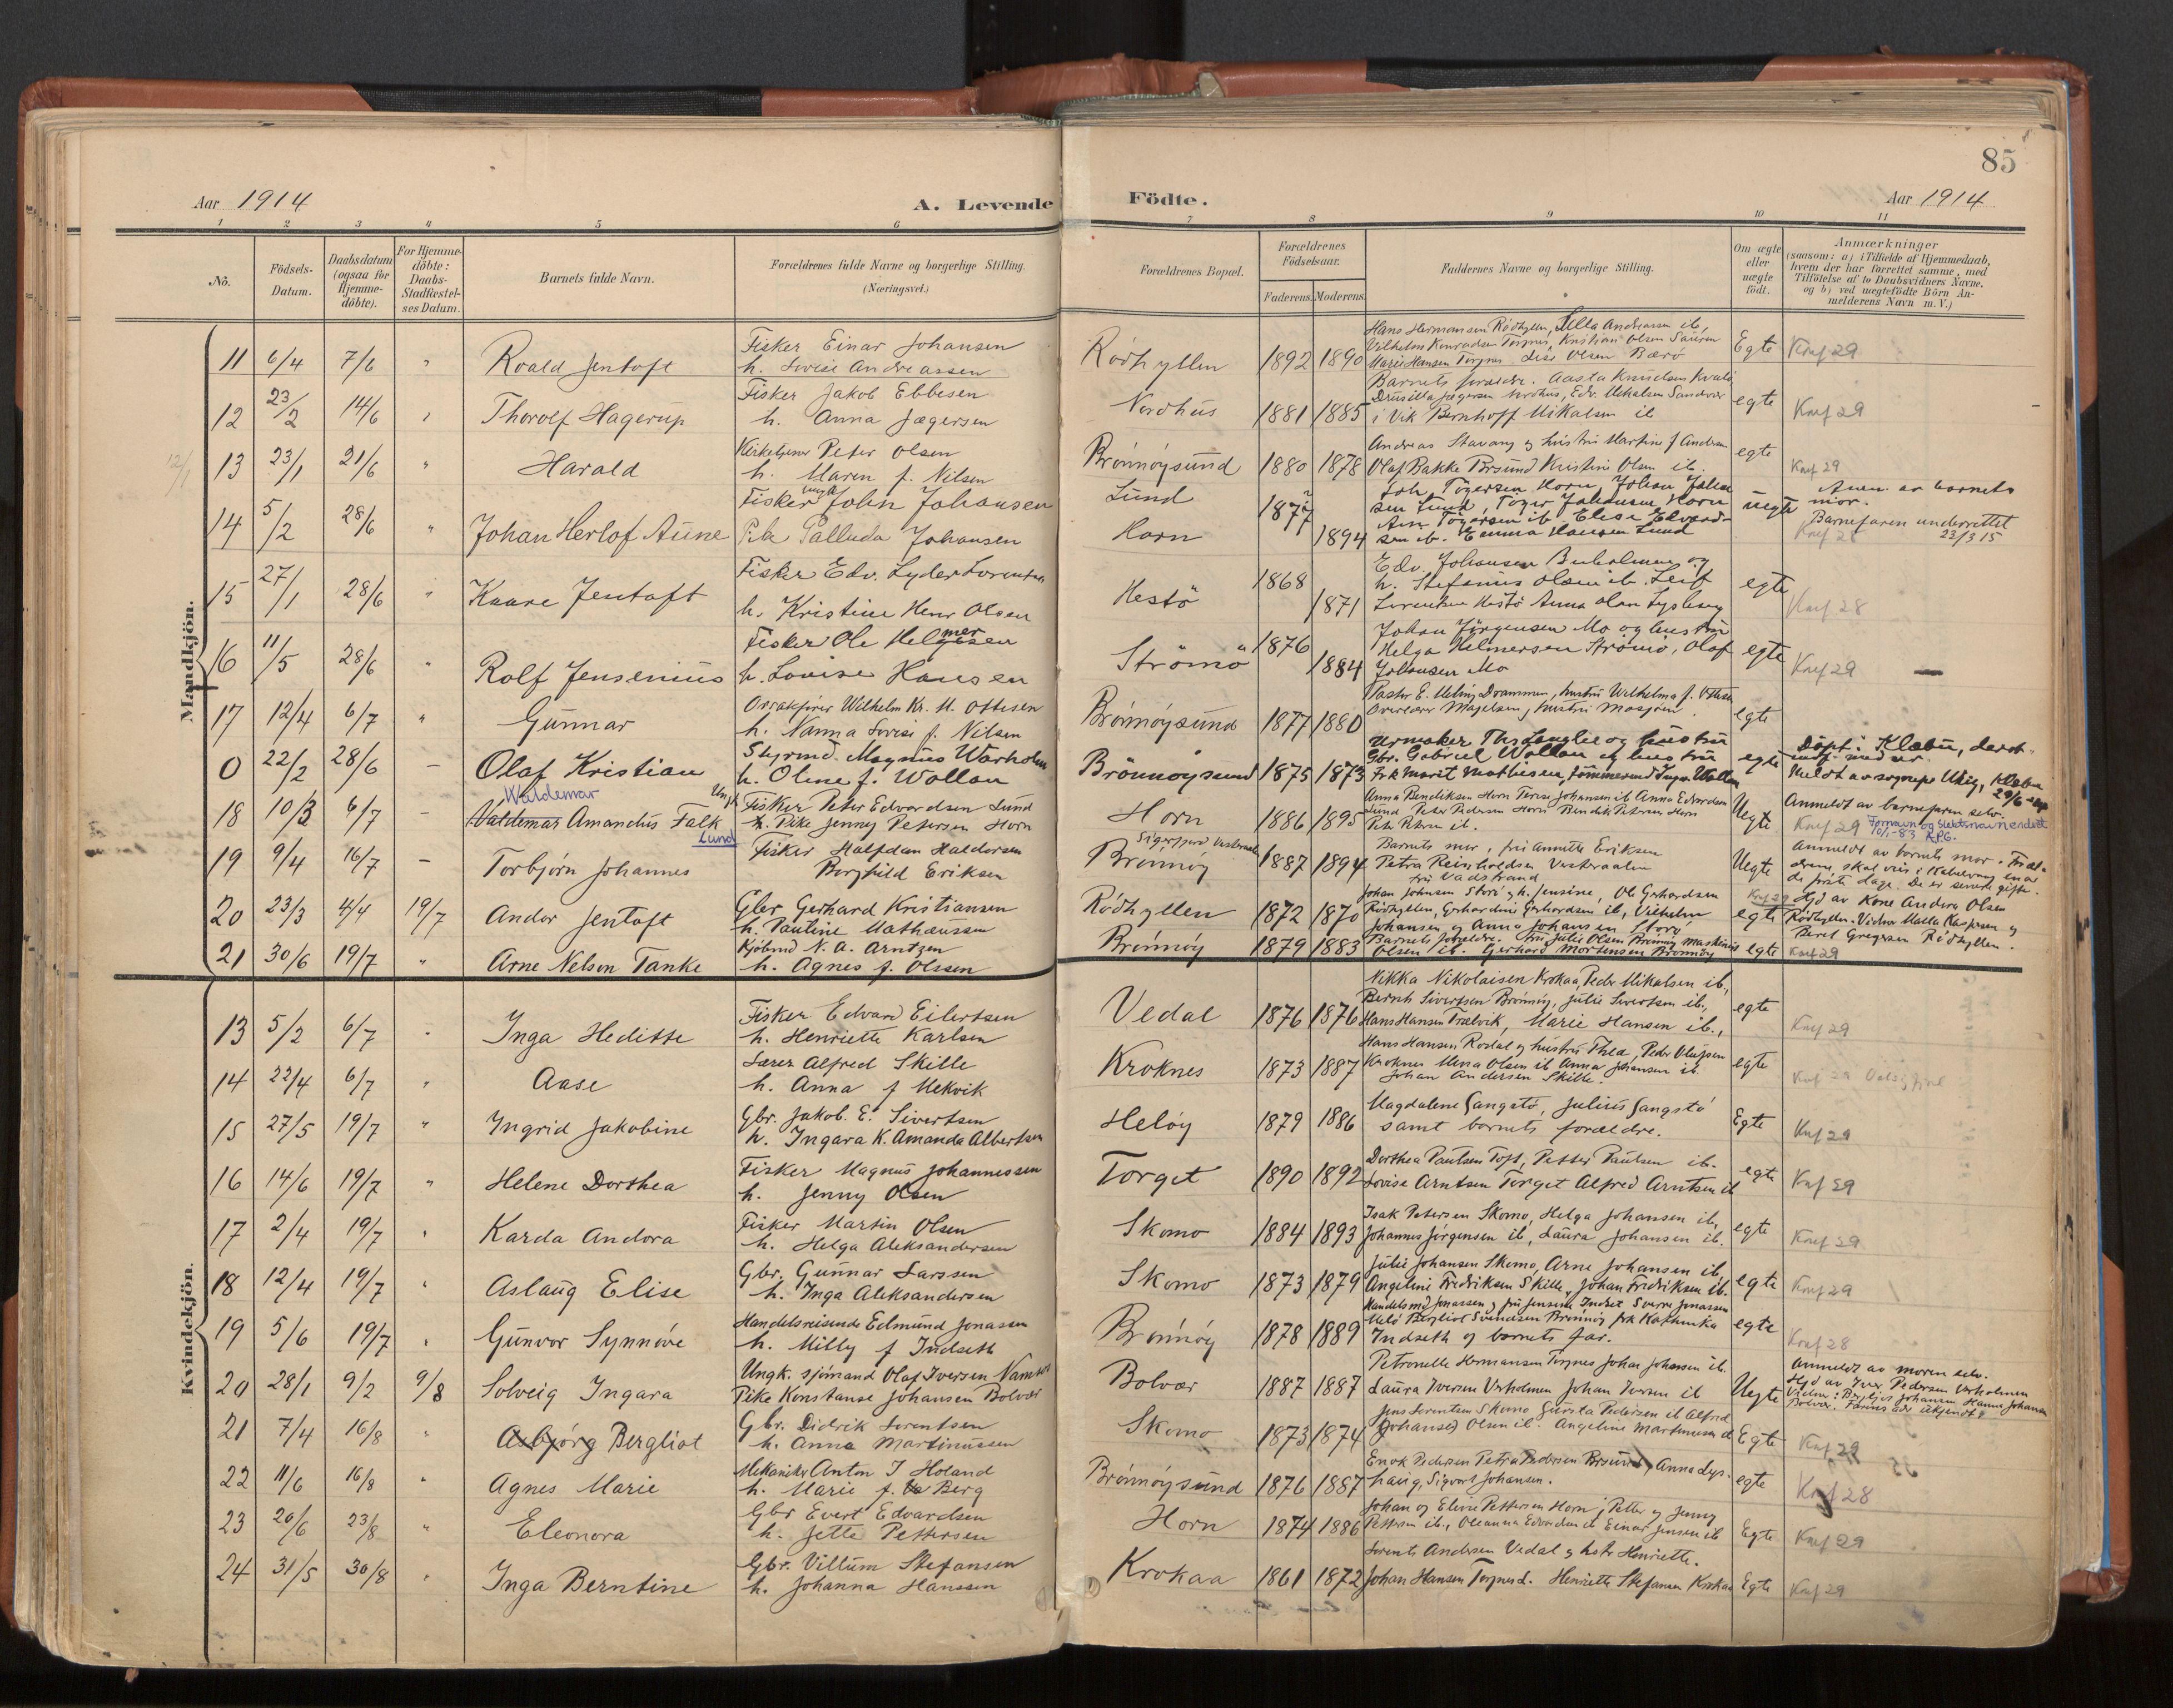 85
Aar 1914 A. Levende Födte. Aar 1914
1 2 3 4 5 6 7 8 9 10 11
No.
Födsels-
Datum.
Daabsdatum
(ogsaa for
Hjemme-
döbte).
For Hjemme-
döbte:
Daabs-
Stadfæstel-
ses Datum.
Barnets fulde Navn.
Forældrenes fulde Navne og borgerlige Stilling.
(Næringsvei.)
Forældrenes Bopæl.
Forældrenes
Födselsaar.
Faderens. Moderens.
Faddernes Navne og borgerlige Stilling.
Om ægte
eller
uægte
født.
Anmærkninger
(saasom: a) i Tilfælde af Hjemmedaab,
hvem der har forrettet samme, med
Tilföielse af to Daabsvidners Navne,
og b) ved uegtefödte Börn An-
melderens Navn m. V.)
Mandkjön.
11 6/4 7/6 " Roald Jentoft
Fisker Einar Johansen
h. Lovise Andreassen
Rödhyllen 1892 1890
Hans Hermansen Rödhyllen, Andreassen ib,
Vilhelm Konradsen Torgnes, Kristian Olsen Sauren
Marie Hansen Torgnes Lise Olsen Bærö
Egte Knf 29
12 23/2 14/6 " Thorolf Hagerup
Fisker Jakob Ebbesen
h. Anna Jægersen
Nordhus 1881 1885
Barnets foreldre. Aasta Knudsen Kvalö
Drusilla Jægersen Nordhus, Edv. Mikalsen Sandvær
i Vik Bernhoff Mikalsen ib
egte Knf 29
12/1
13 23/1 21/6 " Harald
Kirketjener Peter Olsen
h. Maren f. Nilsen
Brönnöysund 1880 1878
Andreas Stavang og hustru Martine f Andersen
Olaf Bakke Brsund Kristine Olsen ib.
egte Knf 29
14 5/2 28/6 " Johan Herlof Aune
Fisker ungk John Johansen
Pike Palluda Johansen
Lund
Horn
1877
1894
Joh. Tögersen Horn, Johan Johan
sen Lund, Töger Johansen Horn
Ane Tögersen ib Elise Edvard-
sen ib. Emma Hansen Lund
uegte
Anm. av barnets
mor.
Barnefaren underrettet
23/3 15
Knf 28
15 27/1 28/6 " Kaare Jentoft
Fisker Edv. Lyder Lorentsen
h. Kristine Henr Olsen
Hestö 1868
1871
Edv. Johansen Buholmen og
h. Stefanus Olsen ib. Leif
Lorentsen Hestö Anna Olsen
egte Knf 28
16 11/5 28/6 " Rolf Jensenius
Fisker Ole Helgesen
mer
h. Lovise Hansen
Strömö 1876
1884
Johan Jörgensen Mo og hustru
Helga Helmersen Strömö, Olaf
Johansen Mo
egte Knf 29
17 12/4 6/7 " Gunnar
Vilhelm Kr. M. Ottesen
h. Nanna Lovise f. Nilsen
Brönnöysund 1877 1880
Pastor E. Meling Drammen, hustru Wilhelma f. Ottesen
Overlærer Magelsen, hustru Mosjöen.
egte
0 22/2 28/6 — Olaf Kristian
Styrmd. Magnus Warholm
h. Oline f. Wollan
Brönnöysund 1875 1873
Urmaker Ths Langlie og hustru
Gbr. Gabriel Wollan og hustru
Frk Marit Mathiesen, Inger Wollan
egte
Döpt i Klæbu, derst.
Meldt av sognepr. Klæbu
29/6
18 10/3 6/7 — Valdemar Amandus Falk
Waldemar
Lund
Ungk. Fisker Peter Edvardsen Lund
h. Pike Jenny Petersen Horn
Horn 1886 1895
Anna Bendiksen Horn Terese Johansen ib Anna Edvardsen
Lund Peter Pedersen Horn Bendik Petersen Horn
Petersen ib.
Uegte
Anmeldt av barnefaren selv.
Knf 29 Fornavn og slektsnavn endret
10/1-83 R.P.G.
19 9/4 16/7 — Torbjörn Johannes
Fisker Halfdan Haldorsen
Borghild Eriksen
Sigerfjord Vesteraalen
Brönnöy 1887 1894
Barnets mor, fru Annette Eriksen
Petra Reinholdsen Vesteraalen
fru Vadstrand
Uegte
Anmeldt av barnets mor. Foræl-
drene skal vies i en av
de förste dage. De er senere gifte.
20 23/3 4/4 19/7 Andor Jentoft
Gbr Gerhard Kristiansen
h. Pauline Mathæussen
Rödhyllen 1872 1870
Johan Johnsen Storö og h. Jensine, Ole Gerhardsen
Rödhyllen, Gerhardine Gerhardsen ib, Vilhelm
Johansen og Anna Johansen Storö
egte
Knf 29 Hjd av Kone Andora Olsen
Rödhyllen. Vidner Malla Kaspersen og
Beret Gregersen Rödhyllen.
21 30/6 19/7 " Arne Nelson Tanke
Kjöbmd N. A. Arntzen
h. Agnes f. Olssen
Brönnöy 1879 1883
Barnets foreldre. Fru Julie Olsen Brönnöy maskinist
Olsen ib. Gerhard Mortensen Brönnöy
egte Knf 29
Kvindekjön.
13 5/2 6/7 " Inga Heditte
Fisker Edvard Eilertsen
h. Henriette Karlsen
Vedal 1876 1876
Nikka Nikolaisen Krokaa, Peder Mikalsen ib,
Bernt Sivertsen Brönnöy, Julie Sivertsen ib.,
Hans Hansen Trælvik, Marie Hansen ib.,
egte Knf 29
14 22/4 6/7 " Aase
Lærer Alfred Skille
h. Anna f Mekvik
Kroknes 1873 1887
Hans Hansen Rodal og hustru Thea, Peder Olufsen
Kroknes Mina Olsen ib Anna Johansen ib.
Johan Andersen Skille.
egte Knf 29 Velsfjord
15 27/5 19/7 " Ingrid Jakobine
Gbr. Jakob. E. Sivertsen
h. Ingara K. Amanda Albertsen
Helöy 1879 1886
Magdalene Langstö, Julius Langstö
samt barnets foreldre.
Egte Knf 29
16 14/6 19/7 " Helene Dorthea
Fisker Magnus Johannessen
h. Jenny Olsen
Torget 1890 1892
Dorthea Paulsen Toft, Petter Paulsen ib.
Lovise Arntsen Torget Alfred Arntsen ib
egte Knf 29
17 2/4 19/7 " Karda Andora
Fisker Martin Olsen
h. Helga Aleksandersen
Skomo 1884 1893
Isak Petersen Skomo, Helga Johansen ib,
Johannes Jörgensen ib, Laura Johansen ib.
egte Knf 29
18 12/4 19/7 " Aslaug Elise
Gbr. Gunnar Larssen
h. Inga Aleksandersen
Skomo 1873 1879
Julie Johansen Skomo, Arne Johansen ib,
Angeline Fredriksen Skille, Johan Fredriksen ib.
egte Knf 29
19 5/6 19/7 " Gunvor Synnöve
Handelsreisende Edmund Jonassen
h. Milly f Indseth
Brönnöy 1878 1889
Handelsmd Jonassen og fru Jensine Indset Sverre Jonassen
Bergliot Svendsen Brönnöy frk Kathinka
Indseth og barnets far.
egte Knf 28
20 28/1 9/2 9/8 Solveig Ingara
Ungk. sjömand Olaf Iversen Namsos
Pike Konstanse Johansen Bolvær
Bolvær 1887 1887
Petronelle Hermansen Torgnes Johan Johansen ib.
Laura Iversen Verholmen Johan Iversen ib
Uegte
Anmeldt av moren selv.
Hjd av Iver Pedersen Verholmen
Vidner: Bergljot Johansen Hanna Johansen
Bolvær.
21 7/4 16/8 " Asbjörg Bergliot
Gbr. Didrik Lorentsen
h. Anna Martinussen
Skomo 1873 1874
Jens Lorentsen Skomo Pedersen ib Alfred
(Johanses) Olsen ib. Angeline Martinussen ib
Egte Knf 29
22 11/6 16/8 " Agnes Marie
Mekaniker Anton J Holand
h. Marie f. Berg
Brönnöysund 1876 1887
Enok Pedersen Petra Pedersen Brsund, Anna Lys-
haug, Sigvart Johansen.
egte Knf 28
23 20/6 23/8 " Eleonora
Gbr Evert Edvardsen
h. Jette Pettersen
Horn 1874 1886
Johan og Eline Pettersen Horn, Petter og Jenny
Pettersen ib., Oleanna Edvardsen ib Einar Jensen ib
Egte Knf 29
24 31/5 30/8 " Inga Berntine
Gbr. Villum Stefansen
h. Johanna Hanssen
Krokaa 1861 1872
Lorents Andersen Vedal og hstr Henriette.
Johan Hansen Torgnes. Henriette Stefansen Krokaa
Egte Knf 29